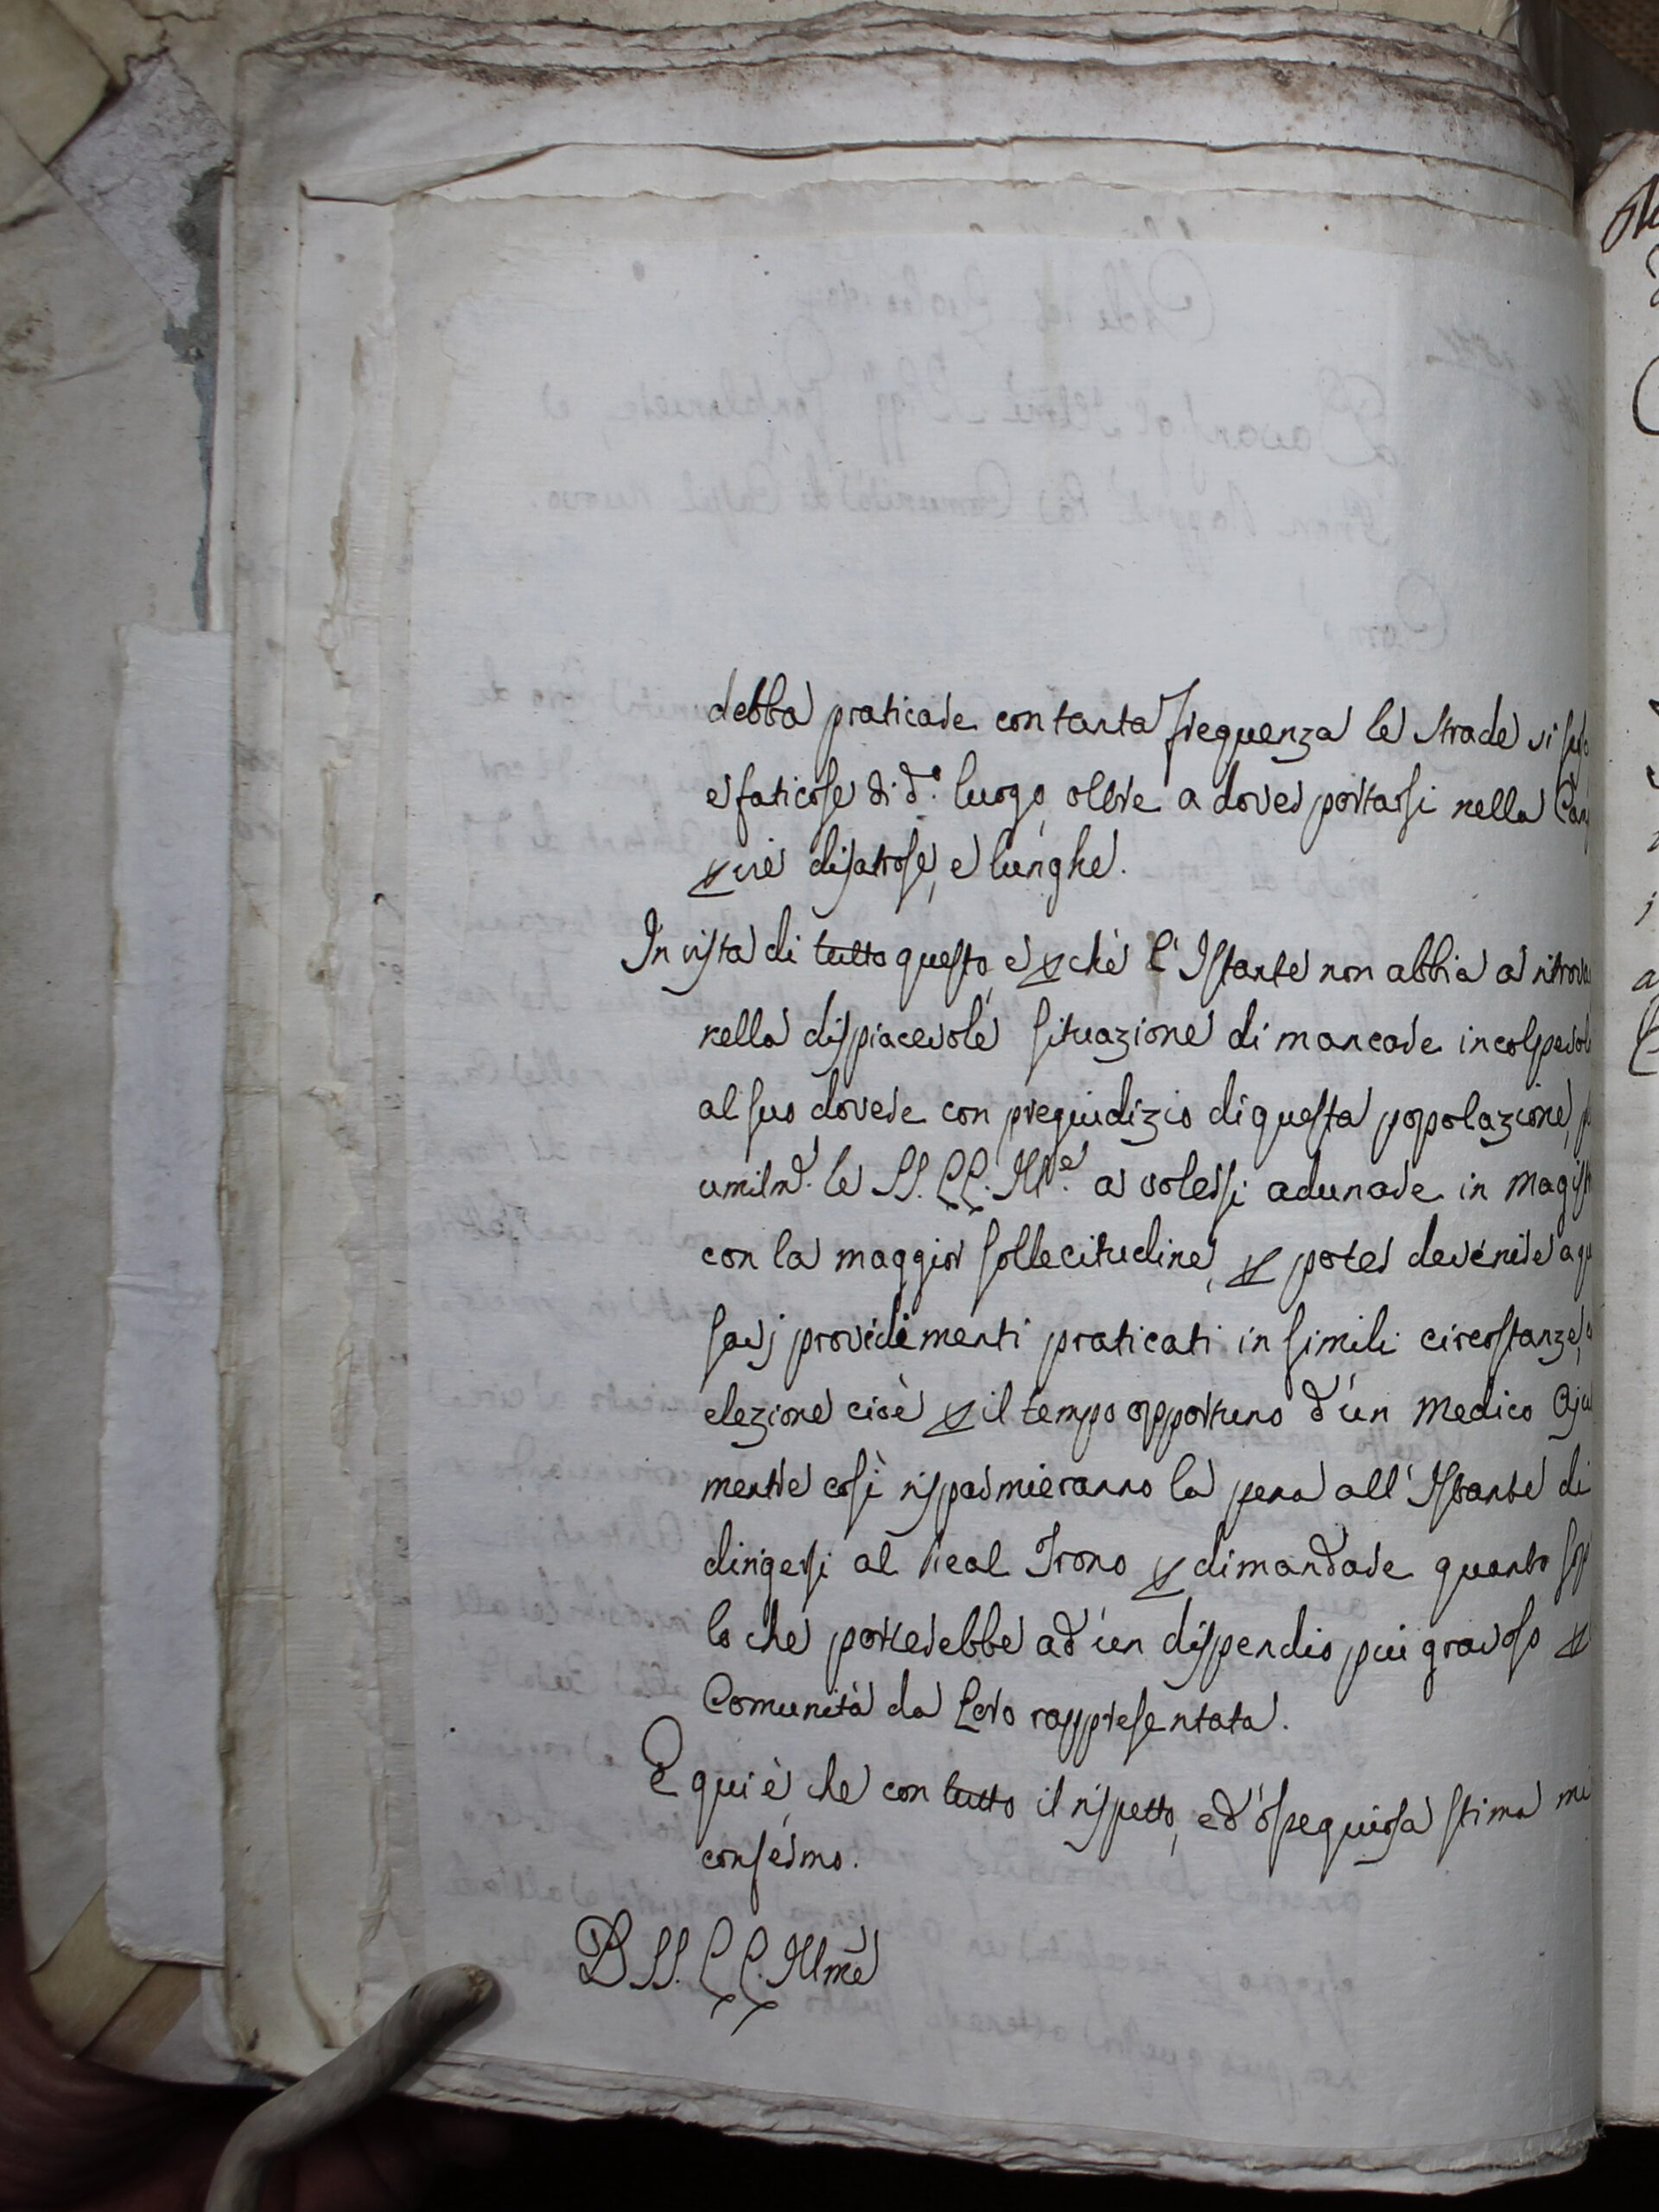 debba praticare con tanta frequenza le strade si
e faticose di d.o luogo, oltre a dover portarsi nella
per vie disatrose, e lunghe.
In vista di tutto questo, e perchè l'Istante non abbia a ritrova
nella dispiacevole situazione di mancare incolpevol
al suo dovere con pregiudizio di questa popolazione,
umilm.e le SS. LL. Ill.e a volersi adunare in Magist
con la maggior sollecitudine, per poter devenire a qu
savj providimenti praticati in simili circostanze,
elezione cioè per il tempo opportuno d'un Medico Aju
mentre così rispar mieranno la pena all'Istante di
dirigersi al Real Trono per dimandare quanto sop
lo che porterebbe ad'un dispendio più gravoso per
Comunità da Loro rappresentata.
E qui è, che con tutto il rispetto, ed'ossequiosa stima mi
confermo.
D SS. LL. Illme